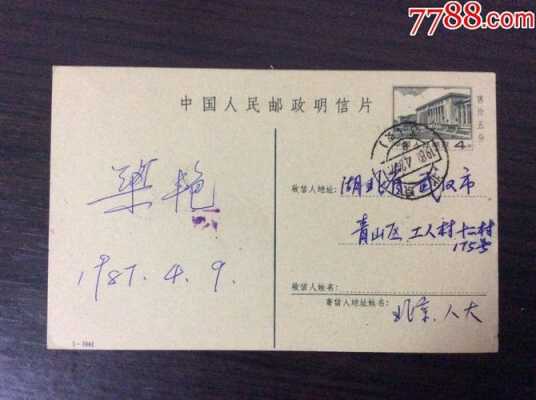 7788.com
中国人民邮政明信片
售价五分
4
梁艳
1987. 4. 9.
收信人地址:湖北省 武汉市
青山区 工人村 十二村
175号
收信人姓名:
寄信人地址姓名:
北京.人大
1—1981